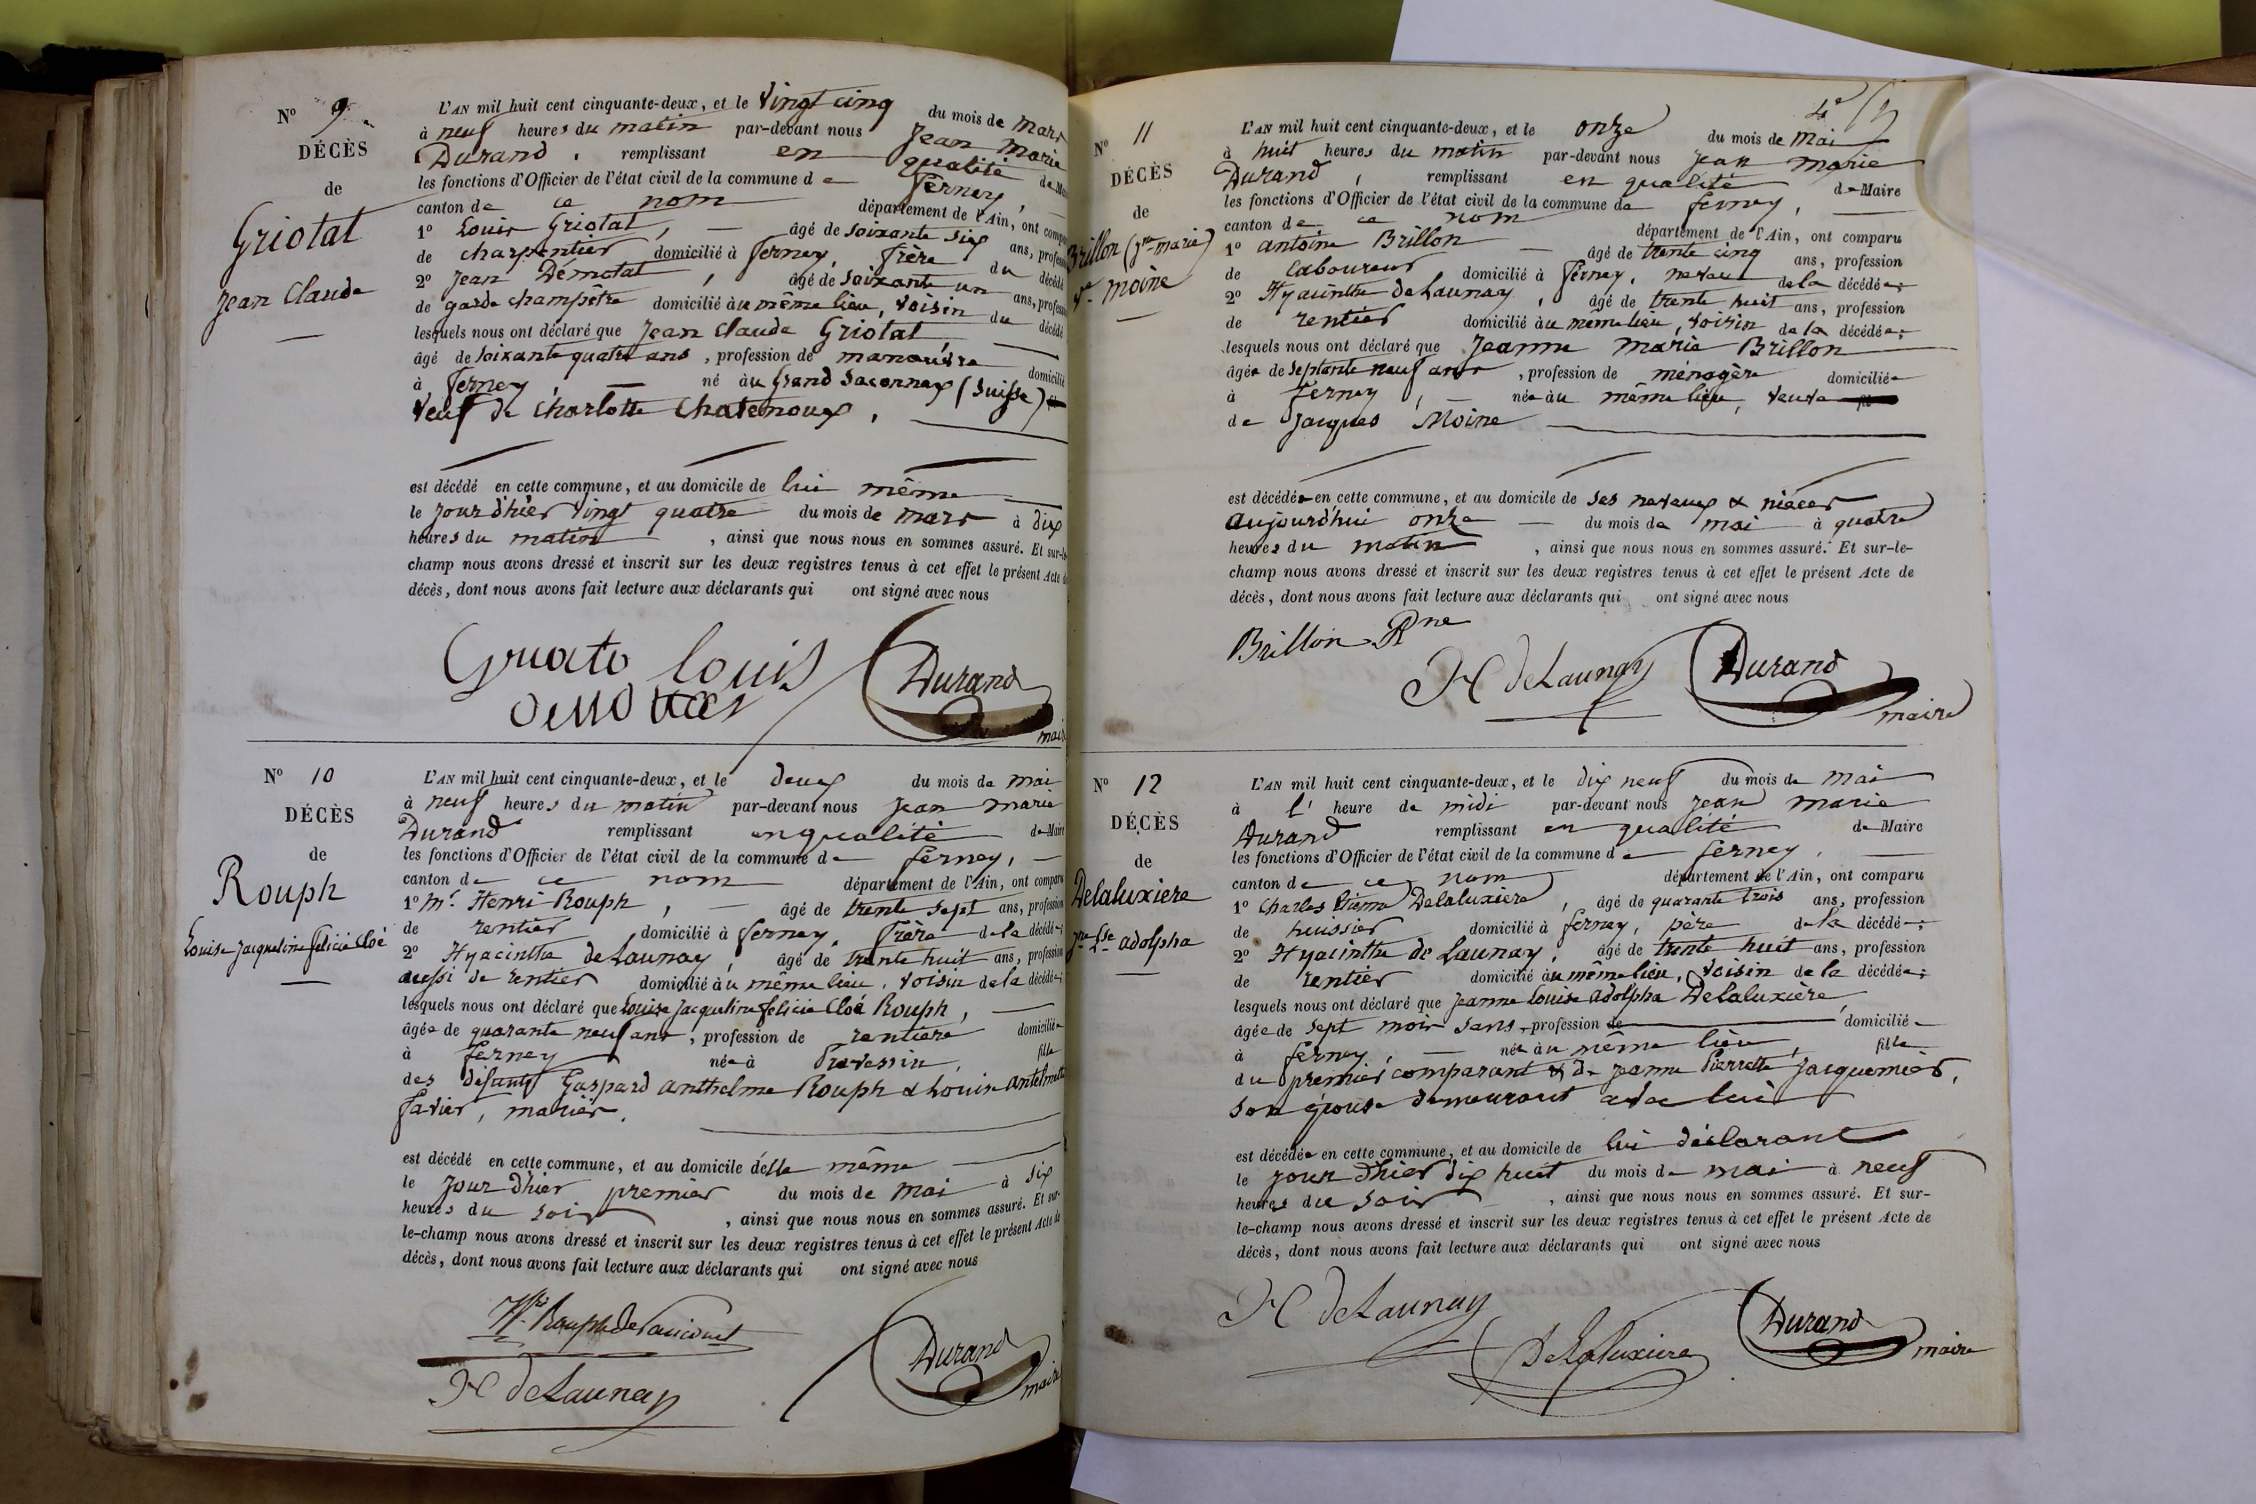 N° 9
DÉCÈS
de
Griotat
Jean Claude
L'AN mil huit cent cinquante-deux, et le vingt cinq du mois de mars
à neuf heures du matin par-devant nous Jean Marie
Durand, remplissant en qualité de Mai
les fonctions d'Officier de l'état civil de la commune de Ferney,
canton de ce nom département de l'Ain, ont compa
1° Louis Griotat, âgé de soixante six ans, profess
de charpentier domicilié à Ferney, frère du décédé
2° Jean Démotat, âgé de soixante un ans, profess
de garde champêtre domicilié au même lieu, voisin du décédé
lesquels nous ont déclaré que Jean Claude Griotat
âgé de soixante quatre ans, profession de manouvre domicilié
à Ferney, né au Grand Saconnex (Suisse)
veuf de Charlotte Chatenoux,
est décédé en cette commune, et au domicile de lui même
le jour d'hier vingt quatre du mois de mars à dix
heures du matin, ainsi que nous nous en sommes assuré. Et sur-le-
champ nous avons dressé et inscrit sur les deux registres tenus à cet effet le présent Acte de
décès, dont nous avons fait lecture aux déclarants qui ont signé avec nous
Louis
Durand
maire
N° 10
DÉCÈS
de
Rouph
Louise Jacqueline félicie Cloé
L'AN mil huit cent cinquante-deux, et le deux du mois de mai
à neuf heures du matin par-devant nous Jean Marie
Durand remplissant en qualité de Maire
les fonctions d'Officier de l'état civil de la commune de Ferney,
canton de ce nom département de l'Ain, ont comparu
1° Mr. Henri Rouph, âgé de trente sept ans, profession
de rentier domicilié à Ferney, frère de la décédée;
2° Hyacinthe deLaunay, âgé de trente huit ans, profession
aussi de rentier domicilié au même lieu, voisin de la décédée;
lesquels nous ont déclaré que Louise Jacqueline félicie Cloé Rouph,
âgée de quarante neuf ans, profession de rentière domiciliée
à Ferney née à Prévessin, fille
des défunts Gaspard Anthelme Rouph & Louise Antelmette
Favier, mariés.
est décédé en cette commune, et au domicile d'elle même
le jour d'hier premier du mois de mai à six
heures du soir, ainsi que nous nous en sommes assuré. Et sur-
le-champ nous avons dressé et inscrit sur les deux registres tenus à cet effet le présent Acte de
décès, dont nous avons fait lecture aux déclarants qui ont signé avec nous
H deLaunay
Durand
maire
N° 11
DÉCÈS
de
Brillon (Jne marie)
Ve Moine
L'AN mil huit cent cinquante-deux, et le onze du mois de mai
à huit heures du matin par-devant nous Jean Marie
Durand, remplissant en qualité de Maire
les fonctions d'Officier de l'état civil de la commune de Ferney,
canton de ce nom département de l'Ain, ont comparu
1° antoine Brillon âgé de trente cinq ans, profession
de Laboureur, domicilié à Ferney, neveu de la décédée;
2° Hyacinthe deLaunay, âgé de trente huit ans, profession
de rentier domicilié au même lieu, voisin de la décédée;
lesquels nous ont déclaré que Jeanne Marie Brillon
âgée de septante neuf ans, profession de ménagère domiciliée
à Ferney, née au même lieu, veuve
de Jacques Moine
est décédée en cette commune, et au domicile de ses neveux & nièces
aujourd'hui onze du mois de mai à quatre
heures du matin, ainsi que nous nous en sommes assuré. Et sur-le-
champ nous avons dressé et inscrit sur les deux registres tenus à cet effet le présent Acte de
décès, dont nous avons fait lecture aux déclarants qui ont signé avec nous
Brillon
H deLaunay
Durand
maire
N° 12
DÉCÈS
de
Delaluxiere
Jne Lse adolpha
L'AN mil huit cent cinquante-deux, et le dix neuf du mois de mai
à l' heure de midi par-devant nous Jean Marie
Durand remplissant en qualité de Maire
les fonctions d'Officier de l'état civil de la commune de Ferney,
canton de ce nom département de l'Ain, ont comparu
1° Charles Pierre Delaluxière, âgé de quarante trois ans, profession
de huissier domicilié à Ferney, père de la décédée;
2° Hyacinthe de Launay, âgé de trente huit ans, profession
de rentier domicilié au même lieu, voisin de la décédée;
lesquels nous ont déclaré que Jeanne Louise adolpha Delaluxière
âgée de sept mois sans profession de domiciliée
à Ferney, née au même lieu, fille
du premier comparant & de Jeanne Pierrette Jacquemier,
son épouse demeurant avec lui
est décédée en cette commune, et au domicile de lui déclarant
le jour d'hier dix huit du mois de mai à neuf
heures du soir, ainsi que nous nous en sommes assuré. Et sur-
le-champ nous avons dressé et inscrit sur les deux registres tenus à cet effet le présent Acte de
décès, dont nous avons fait lecture aux déclarants qui ont signé avec nous
H deLaunay
Delaluxiere
Durand
maire